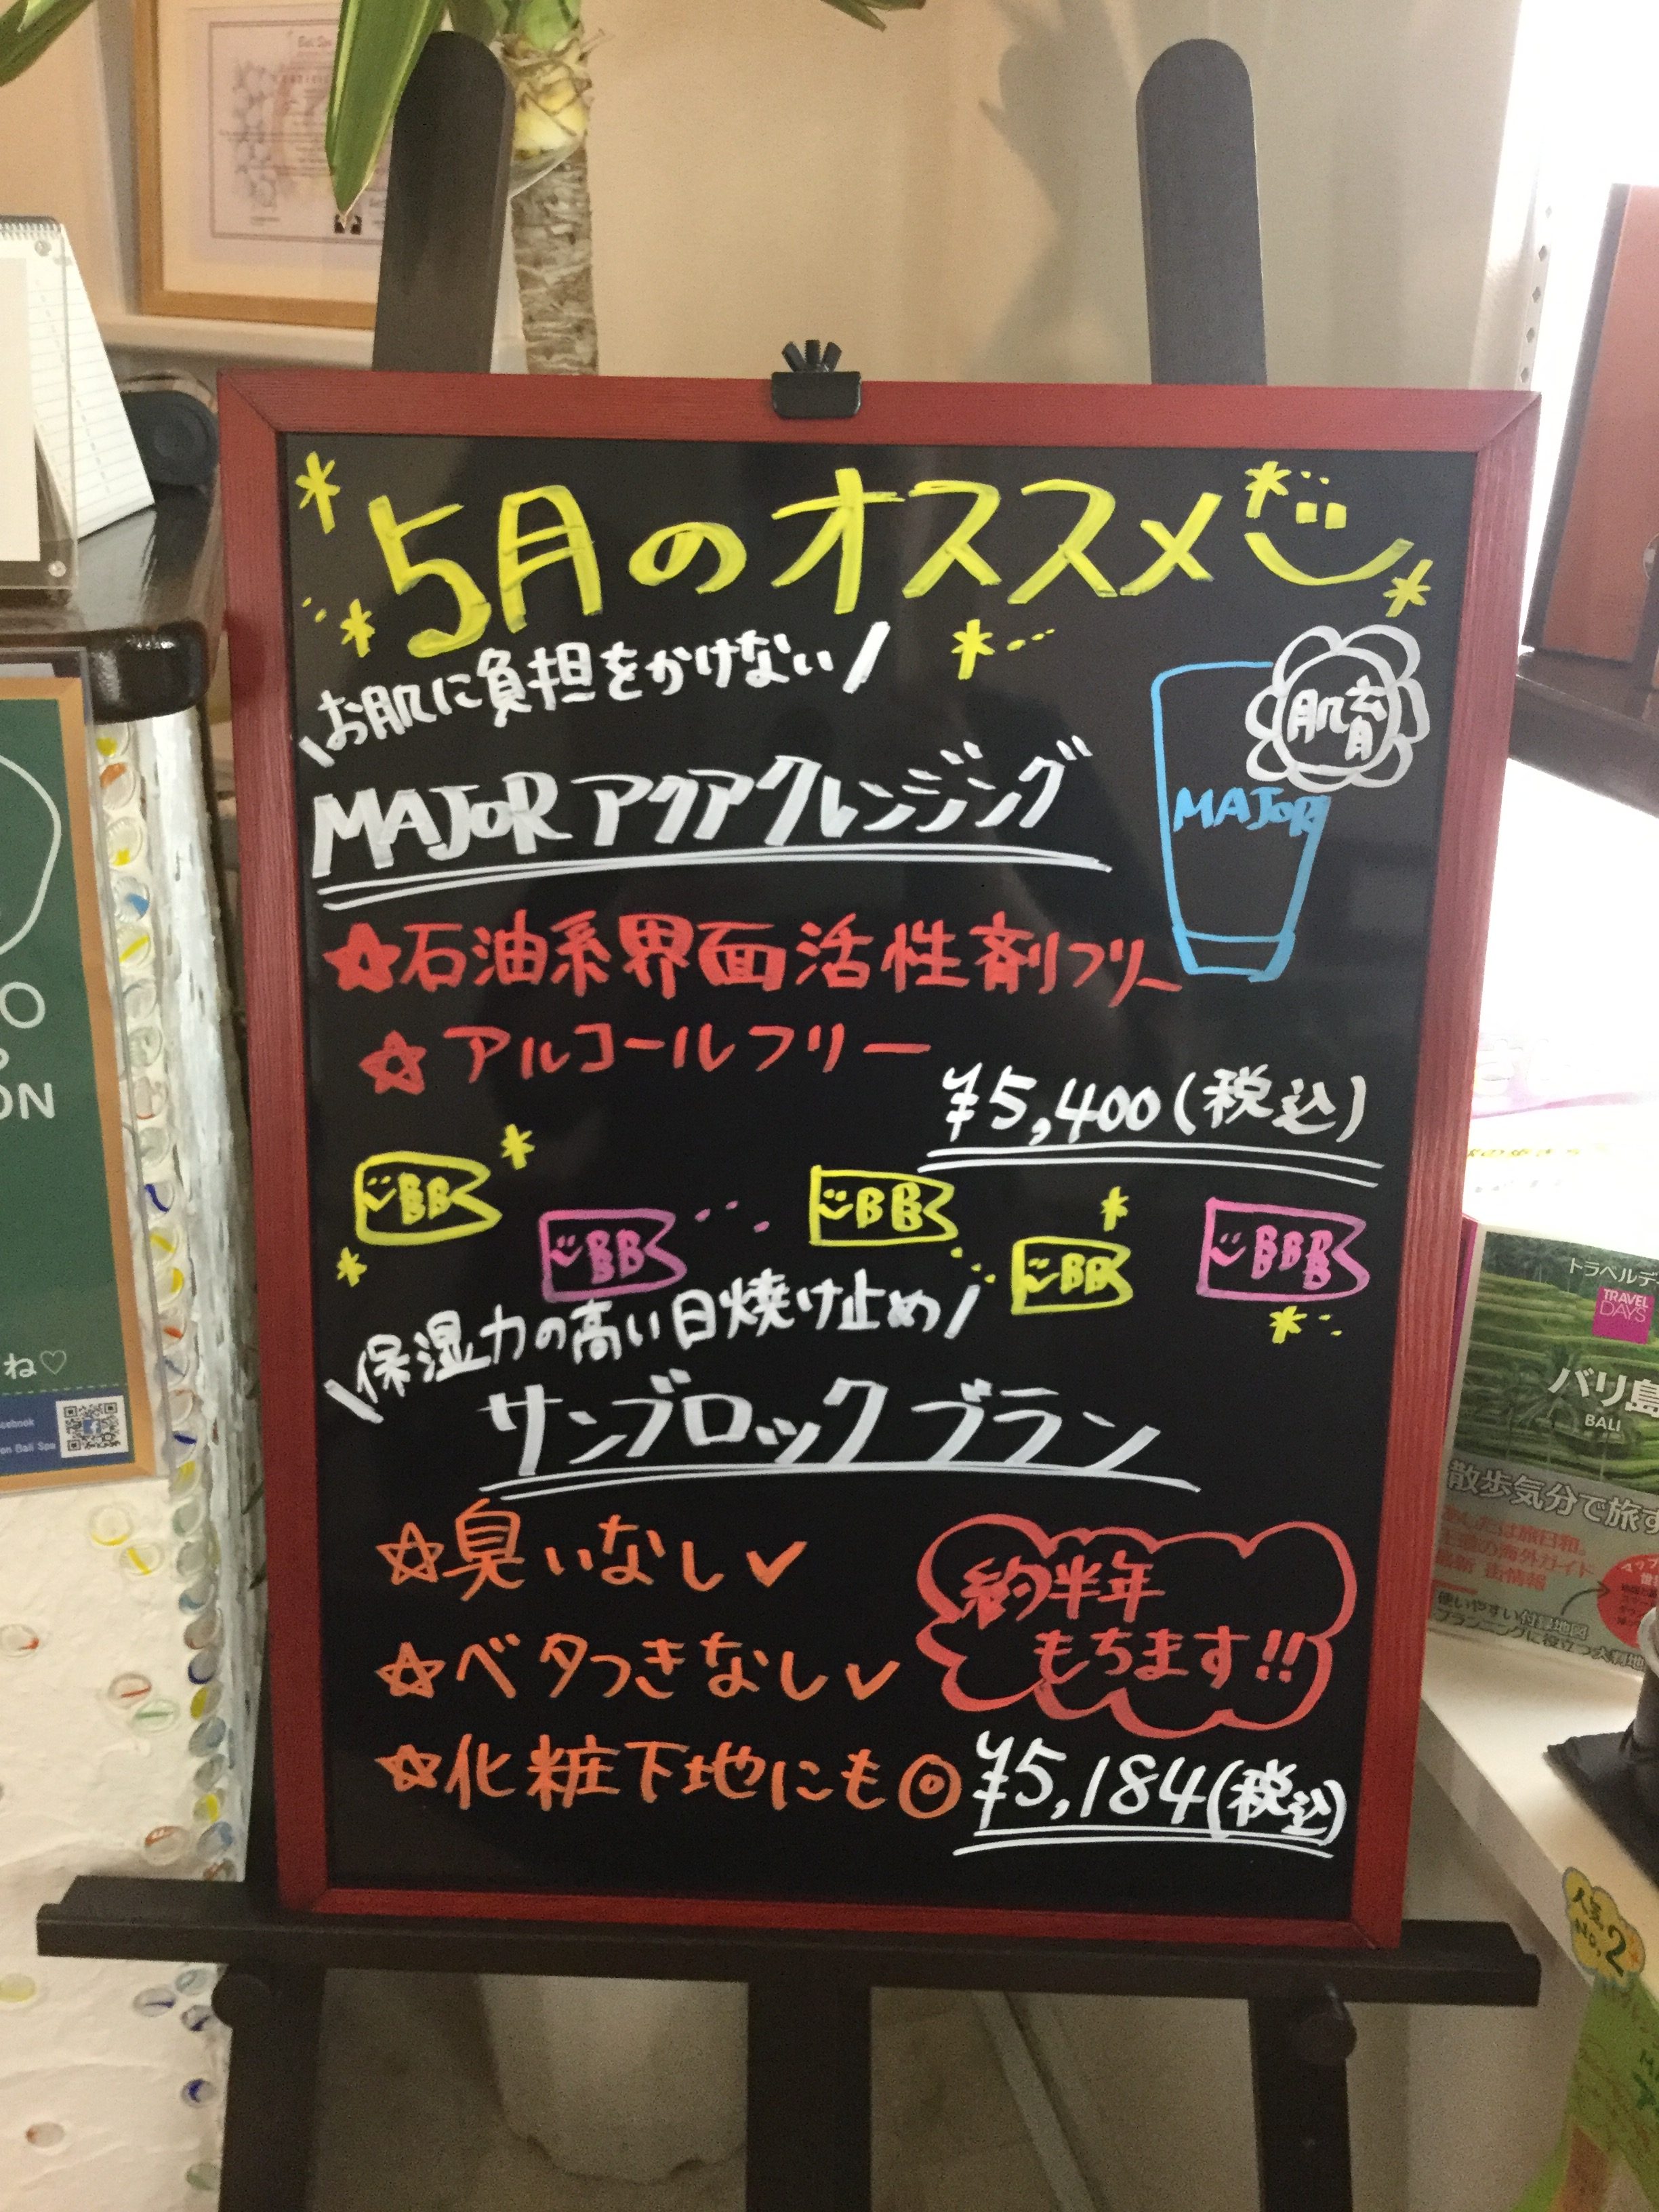 5月のオススメ
お肌に負担をかけない
肌育
MAJOR アクアクレンジング
MAJOR
☆石油系界面活性剤フリー
☆アルコールフリー
¥5,400(税込)
BB
BB
BB
BB
BBB
保湿力の高い日焼け止め
サンブロック ブラン
☆臭いなし✓
☆ベタつきなし✓
約半年
もちます!!
☆化粧下地にも◎
¥5,184(税込)
ON
ね♡
on Bali Spa
トラベルデ
TRAVEL
DAYS
バリ島
BALI
散歩気分で旅す
最新 街情報
使いやすい付録地図
人気
No.2